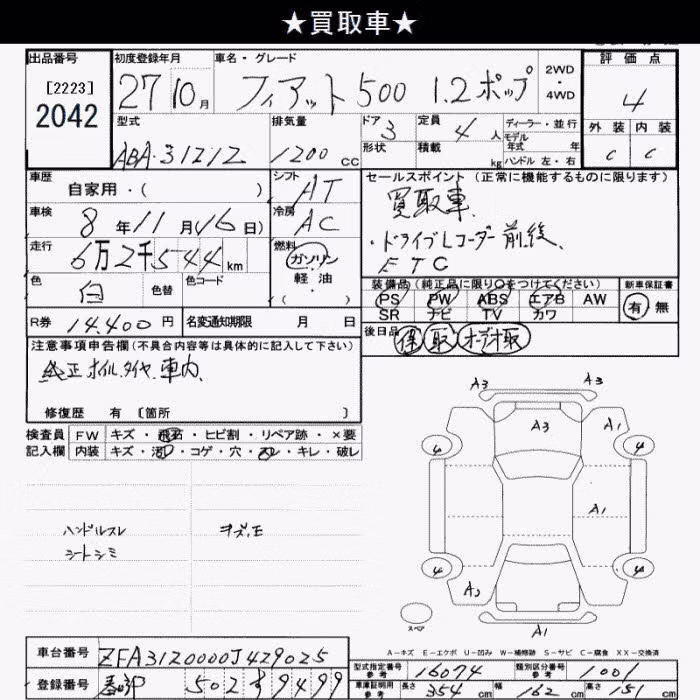 ★買取車★
出品番号 初度登録年月 車名・グレード 2WD・4WD 評価点
[2223]
2042
27 10月 フィアット500 1.2 ポップ 4
型式 排気量 ドア 3 定員 4人 ディーラー・並行 外装 内装
モデル年式 年
ABA-31212 1200cc 形状 積載 kg ハンドル 左・右 C C
車歴 シフト AT セールスポイント(正常に機能するものに限ります)
自家用・( ) 買取車
車検 8年11月16日) 冷房 AC
・ドライブレコーダー前後、
走行 6万2千544km 燃料 ガソリン
軽油
ETC
色 白 色替 色コード 装備品(純正品に限り○をつけてください) 新車保証書
PS PW ABS エアB AW 有 無
SR ナビ TV カワ
R券 14,400円 名変通知期限 月 日 後日品 保 取 オーデオ取
注意事項申告欄(不具合内容等は具体的に記入して下さい)
純正ホイル、タイヤ、車内、
修復歴 有 〔箇所 〕
検査員 FW キズ・飛石・ヒビ割・リペア跡・×要
記入欄 内装 キズ・汚・コゲ・穴・スレ・キレ・破レ
A3 A3
A3 A1
4 4
A1
ハンドルスレ
シートシミ
4 4
A2
スペア A1
A-キズ E-エクボ U-凹み W-補修跡 S-サビ C-腐食 XX-交換済
車台番号 ZFA3120000J429025
型式指定番号 参考 16074 類別区分番号 参考 1001
登録番号 502 9499
車庫証明用 参考 長さ 354cm 幅 162cm 高さ 151cm